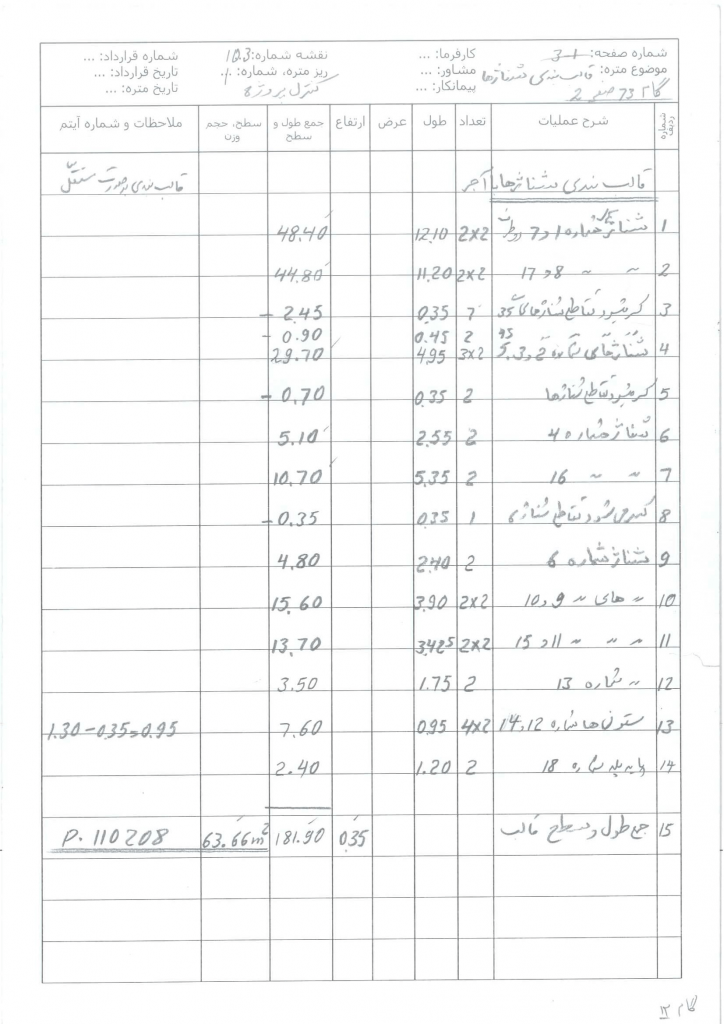 شماره صفحه: 3-1 کارفرما: ... نقشه شماره: 103 شماره قرارداد: ...
موضوع متره: قالب بندی شناژها مشاور: ... ریز متره، شماره: 1 تاریخ قرارداد: ...
گام 73 صفر 2 پیمانکار: ... کنترل پروژه تاریخ متره: ...
شماره ردیف شرح عملیات تعداد طول عرض ارتفاع جمع طول و سطح سطح، حجم وزن ملاحظات و شماره آیتم
قالب بندی شناژها با آجر قالب بندی بصورت مستقل
1 شناژ شماره 1 و 7 2x2 12.10 48.40
2 〃 〃 8 و 17 2x2 11.20 44.80
3 کسر میشود تقاطع شناژهای 35 7 0.35 - 2.45
45 2 0.45 - 0.90
4 شناژهای شماره 2 و 3 و 5 3x2 4.95 29.70
5 کسر میشود تقاطع شناژها 2 0.35 - 0.70
6 شناژ شماره 4 2 2.55 5.10
7 〃 〃 16 2 5.35 10.70
8 کسر می شود تقاطع شناژ 6 1 0.35 - 0.35
9 شناژ شماره 6 2 2.40 4.80
10 〃 های 〃 9 و 10 2x2 3.90 15.60
11 〃 〃 〃 11 و 15 2x2 3.425 13.70
12 〃 شماره 13 2 1.75 3.50
13 ستون ها شماره 12 و 14 4x2 0.95 7.60 1.30-0.35=0.95
14 پایه پله شماره 18 2 1.20 2.40
15 جمع طول و سطح قالب 0.35 181.90 63.66m² P. 110208
گام 12